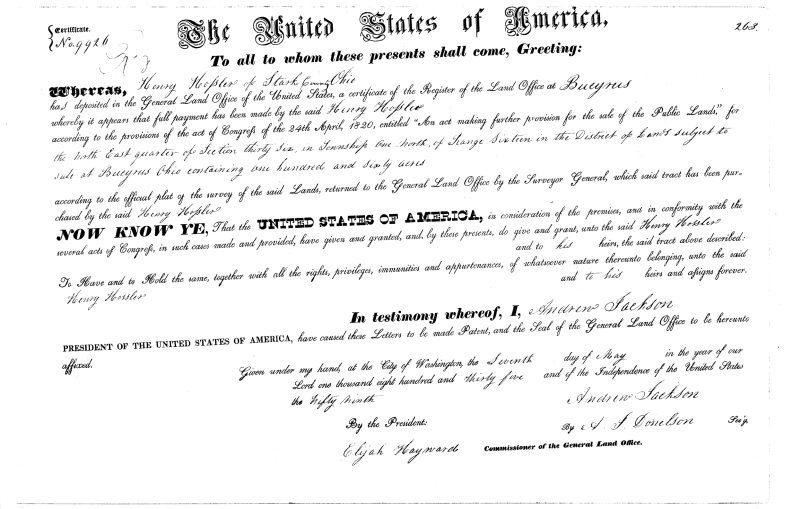 Certificate.
No. 9926
The United States of America,
263.
To all to whom these presents shall come, Greeting:
Whereas, Henry Hoſsler of Stark County Ohio
has deposited in the General Land Office of the United States, a certificate of the Register of the Land Office at Bucyrus
whereby it appears that full payment has been made by the said Henry Hoſsler
according to the provisions of the act of Congreſs of the 24th April, 1820, entitled "An act making further provision for the sale of the Public Lands," for
the North East quarter of Section thirty six, in Township One North, of Range Sixteen in the District of Lands subject to
sale at Bucyrus Ohio containing one hundred and sixty acres
according to the official plat of the survey of the said Lands, returned to the General Land Office by the Surveyor General, which said tract has been pur-
chased by the said Henry Hoſsler
NOW KNOW YE, That the UNITED STATES OF AMERICA, in consideration of the premises, and in conformity with the
several acts of Congreſs, in such cases made and provided, have given and granted, and, by these presents, do give and grant, unto the said Henry Hossler
and to his heirs, the said tract above described:
To Have and to Hold the same, together with all the rights, privileges, immunities and appurtenances, of whatsoever nature thereunto belonging, unto the said
Henry Hossler and to his heirs and aſsigns forever.
In testimony whereof, I, Andrew Jackson
PRESIDENT OF THE UNITED STATES OF AMERICA, have caused these Letters to be made Patent, and the Seal of the General Land Office to be hereunto
affixed.
Given under my hand, at the City of Washington, the Seventh day of May in the year of our
Lord one thousand eight hundred and thirty five and of the Independence of the United States
the fifty ninth
Andrew Jackson
By the President:
By A. J. Donelson Sec'y.
Elijah Hayward Commissioner of the General Land Office.